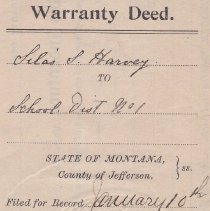 Warranty Deed.
Silas S. Harvey
TO
School Dist No 1
STATE OF MONTANA,
County of Jefferson.
} ss.
Filed for Record January 10th